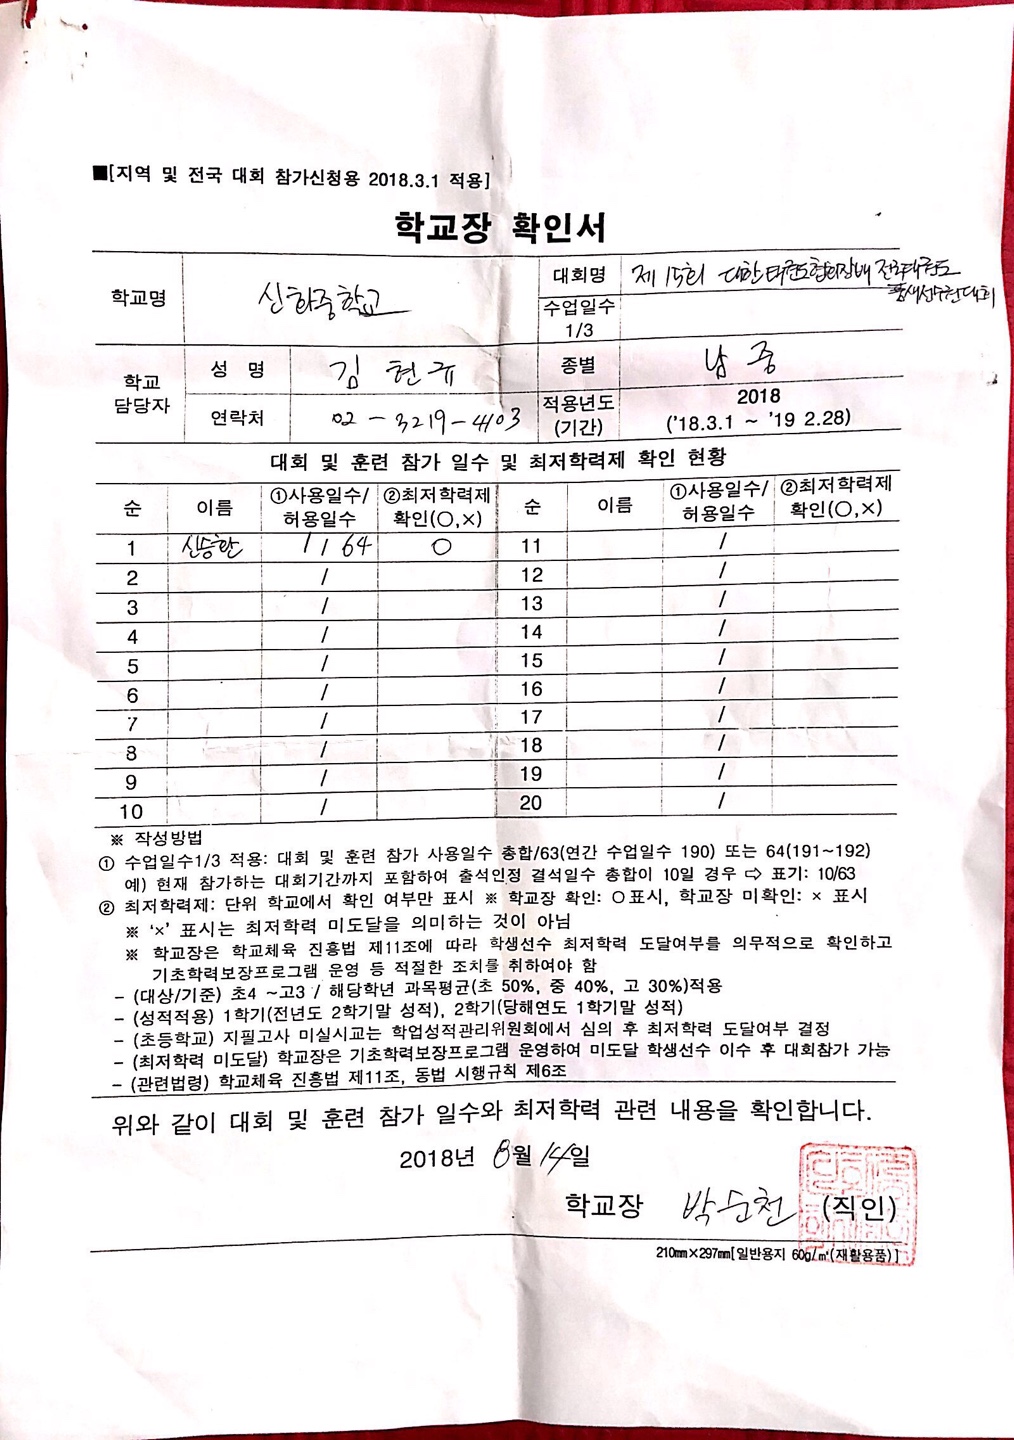 ■[지역 및 전국 대회 참가신청용 2018.3.1 적용]
학교장 확인서
학교명 신화중학교 대회명 제 15회 대한태권도협회장배 전국태권도
품새선수권대회
수업일수
1/3
학교
담당자 성 명 김현규 종별 남중
연락처 02-3219-4103 적용년도
(기간) 2018
('18.3.1 ~ '19 2.28)
대회 및 훈련 참가 일수 및 최저학력제 확인 현황
순 이름 ①사용일수/
허용일수 ②최저학력제
확인(○,×) 순 이름 ①사용일수/
허용일수 ②최저학력제
확인(○,×)
1 신승한 1 / 64 ○ 11 /
2 / 12 /
3 / 13 /
4 / 14 /
5 / 15 /
6 / 16 /
7 / 17 /
8 / 18 /
9 / 19 /
10 / 20 /
※ 작성방법
① 수업일수1/3 적용: 대회 및 훈련 참가 사용일수 총합/63(연간 수업일수 190) 또는 64(191~192)
예) 현재 참가하는 대회기간까지 포함하여 출석인정 결석일수 총합이 10일 경우 ⇨ 표기: 10/63
② 최저학력제: 단위 학교에서 확인 여부만 표시 ※ 학교장 확인: ○표시, 학교장 미확인: × 표시
※ '×' 표시는 최저학력 미도달을 의미하는 것이 아님
※ 학교장은 학교체육 진흥법 제11조에 따라 학생선수 최저학력 도달여부를 의무적으로 확인하고
기초학력보장프로그램 운영 등 적절한 조치를 취하여야 함
- (대상/기준) 초4 ~고3 / 해당학년 과목평균(초 50%, 중 40%, 고 30%)적용
- (성적적용) 1학기(전년도 2학기말 성적), 2학기(당해연도 1학기말 성적)
- (초등학교) 지필고사 미실시교는 학업성적관리위원회에서 심의 후 최저학력 도달여부 결정
- (최저학력 미도달) 학교장은 기초학력보장프로그램 운영하여 미도달 학생선수 이수 후 대회참가 가능
- (관련법령) 학교체육 진흥법 제11조, 동법 시행규칙 제6조
위와 같이 대회 및 훈련 참가 일수와 최저학력 관련 내용을 확인합니다.
2018년 8월 14일
학교장 박순천 (직인)
210㎜×297㎜[일반용지 60g/㎡(재활용품)]